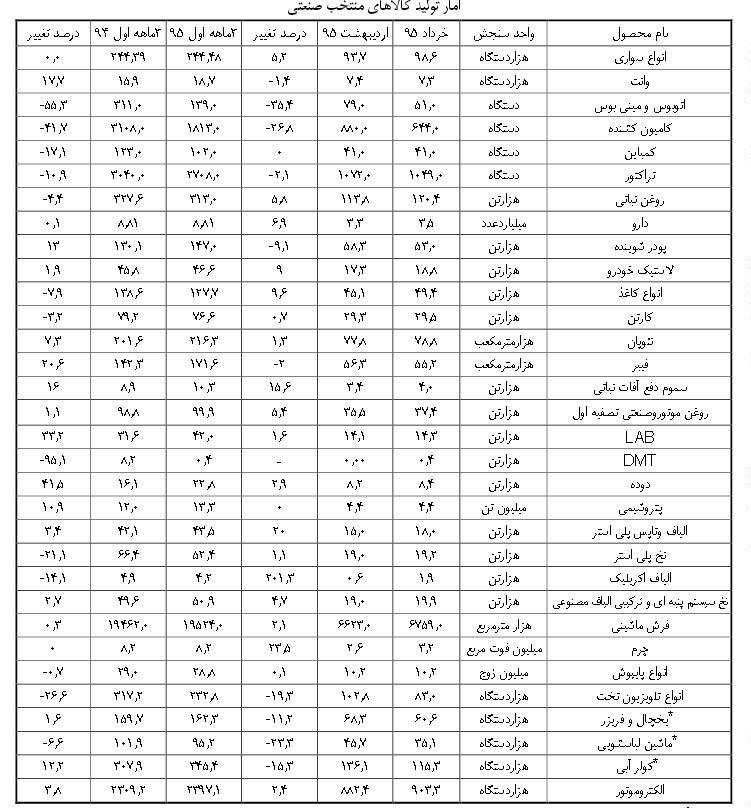 آمار تولید کالاهای منتخب صنعتی
نام محصول واحد سنجش خرداد ۹۵ اردیبهشت ۹۵ درصد تغییر ۳ماهه اول ۹۵ ۳ماهه اول ۹۴ درصد تغییر
انواع سواری هزاردستگاه ۹۸,۶ ۹۳,۷ ۵,۲ ۲۴۴,۴۸ ۲۴۴,۳۹ ۰,۰
وانت هزاردستگاه ۷,۳ ۷,۴ -۱,۴ ۱۸,۷ ۱۵,۹ ۱۷,۷
اتوبوس و مینی بوس دستگاه ۵۱,۰ ۷۹,۰ -۳۵,۴ ۱۳۹,۰ ۳۱۱,۰ -۵۵,۳
کامیون کشنده دستگاه ۶۴۴,۰ ۸۸۰,۰ -۲۶,۸ ۱۸۱۳,۰ ۳۱۰۸,۰ -۴۱,۷
کمباین دستگاه ۴۱,۰ ۴۱,۰ ۰ ۱۰۲,۰ ۱۲۳,۰ -۱۷,۱
تراکتور دستگاه ۱۰۴۹,۰ ۱۰۷۲,۰ -۲,۱ ۲۷۰۸,۰ ۳۰۴۰,۰ -۱۰,۹
روغن نباتی هزارتن ۱۲۰,۴ ۱۱۳,۸ ۵,۸ ۳۱۳,۰ ۳۲۷,۶ -۴,۴
دارو میلیاردعدد ۳,۵ ۳,۳ ۶,۹ ۸,۸۱ ۸,۸۱ ۰,۱
پودر شوینده هزارتن ۵۳,۰ ۵۸,۳ -۹,۱ ۱۴۷,۰ ۱۳۰,۱ ۱۳
لاستیک خودرو هزارتن ۱۸,۸ ۱۷,۳ ۹ ۴۶,۶ ۴۵,۸ ۱,۹
انواع کاغذ هزارتن ۴۹,۴ ۴۵,۱ ۹,۶ ۱۲۷,۷ ۱۳۸,۶ -۷,۹
کارتن هزارتن ۲۹,۵ ۲۹,۳ ۰,۷ ۷۶,۶ ۷۹,۲ -۳,۲
نئوپان هزارمترمکعب ۷۸,۸ ۷۷,۸ ۱,۳ ۲۱۶,۳ ۲۰۱,۶ ۷,۳
فیبر هزارمترمکعب ۵۵,۲ ۵۶,۳ -۲ ۱۷۱,۶ ۱۴۲,۳ ۲۰,۶
سموم دفع آفات نباتی هزارتن ۴,۰ ۳,۴ ۱۵,۶ ۱۰,۳ ۸,۹ ۱۶
روغن موتوروصنعتی تصفیه اول هزارتن ۳۷,۴ ۳۵,۵ ۵,۴ ۹۹,۹ ۹۸,۸ ۱,۱
LAB هزارتن ۱۴,۳ ۱۴,۱ ۱,۶ ۴۲,۰ ۳۱,۶ ۳۳,۲
DMT هزارتن ۰,۴ ۰,۰۰ - ۰,۴ ۸,۲ -۹۵,۱
دوده هزارتن ۸,۴ ۸,۲ ۲,۹ ۲۲,۸ ۱۶,۱ ۴۱,۵
پتروشیمی میلیون تن ۴,۴ ۴,۴ ۰ ۱۳,۳ ۱۲,۰ ۱۰,۹
الیاف وتاپس پلی استر هزارتن ۱۸,۰ ۱۵,۰ ۲۰ ۴۳,۵ ۴۲,۱ ۳,۴
نخ پلی استر هزارتن ۱۹,۲ ۱۹,۰ ۱,۱ ۵۲,۴ ۶۶,۴ -۲۱,۱
الیاف اکریلیک هزارتن ۱,۹ ۰,۶ ۲۰۱,۳ ۴,۲ ۴,۹ -۱۴,۱
نخ سیستم پنبه ای و ترکیبی الیاف مصنوعی هزارتن ۱۹,۹ ۱۹,۰ ۴,۷ ۵۰,۹ ۴۹,۶ ۲,۷
فرش ماشینی هزار مترمربع ۶۷۵۹,۰ ۶۶۲۳,۰ ۲,۱ ۱۹۵۲۴,۰ ۱۹۴۶۲,۰ ۰,۳
چرم میلیون فوت مربع ۳,۲ ۲,۶ ۲۳,۵ ۸,۲ ۸,۲ ۰
انواع پاپوش میلیون زوج ۱۰,۲ ۱۰,۲ ۰,۱ ۲۸,۸ ۲۹,۰ -۰,۷
انواع تلویزیون تخت هزاردستگاه ۸۳,۰ ۱۰۲,۸ -۱۹,۳ ۲۳۲,۸ ۳۱۷,۲ -۲۶,۶
*یخچال و فریزر هزاردستگاه ۶۰,۶ ۶۸,۳ -۱۱,۲ ۱۶۲,۳ ۱۵۹,۷ ۱,۶
*ماشین لباسشویی هزاردستگاه ۳۵,۱ ۴۵,۷ -۲۳,۳ ۹۵,۲ ۱۰۱,۹ -۶,۶
*کولر آبی هزاردستگاه ۱۱۵,۳ ۱۳۶,۱ -۱۵,۳ ۳۴۵,۴ ۳۰۷,۹ ۱۲,۲
الکتروموتور هزاردستگاه ۹۰۳,۳ ۸۸۲,۴ ۲,۴ ۲۳۹۷,۱ ۲۳۰۹,۲ ۳,۸